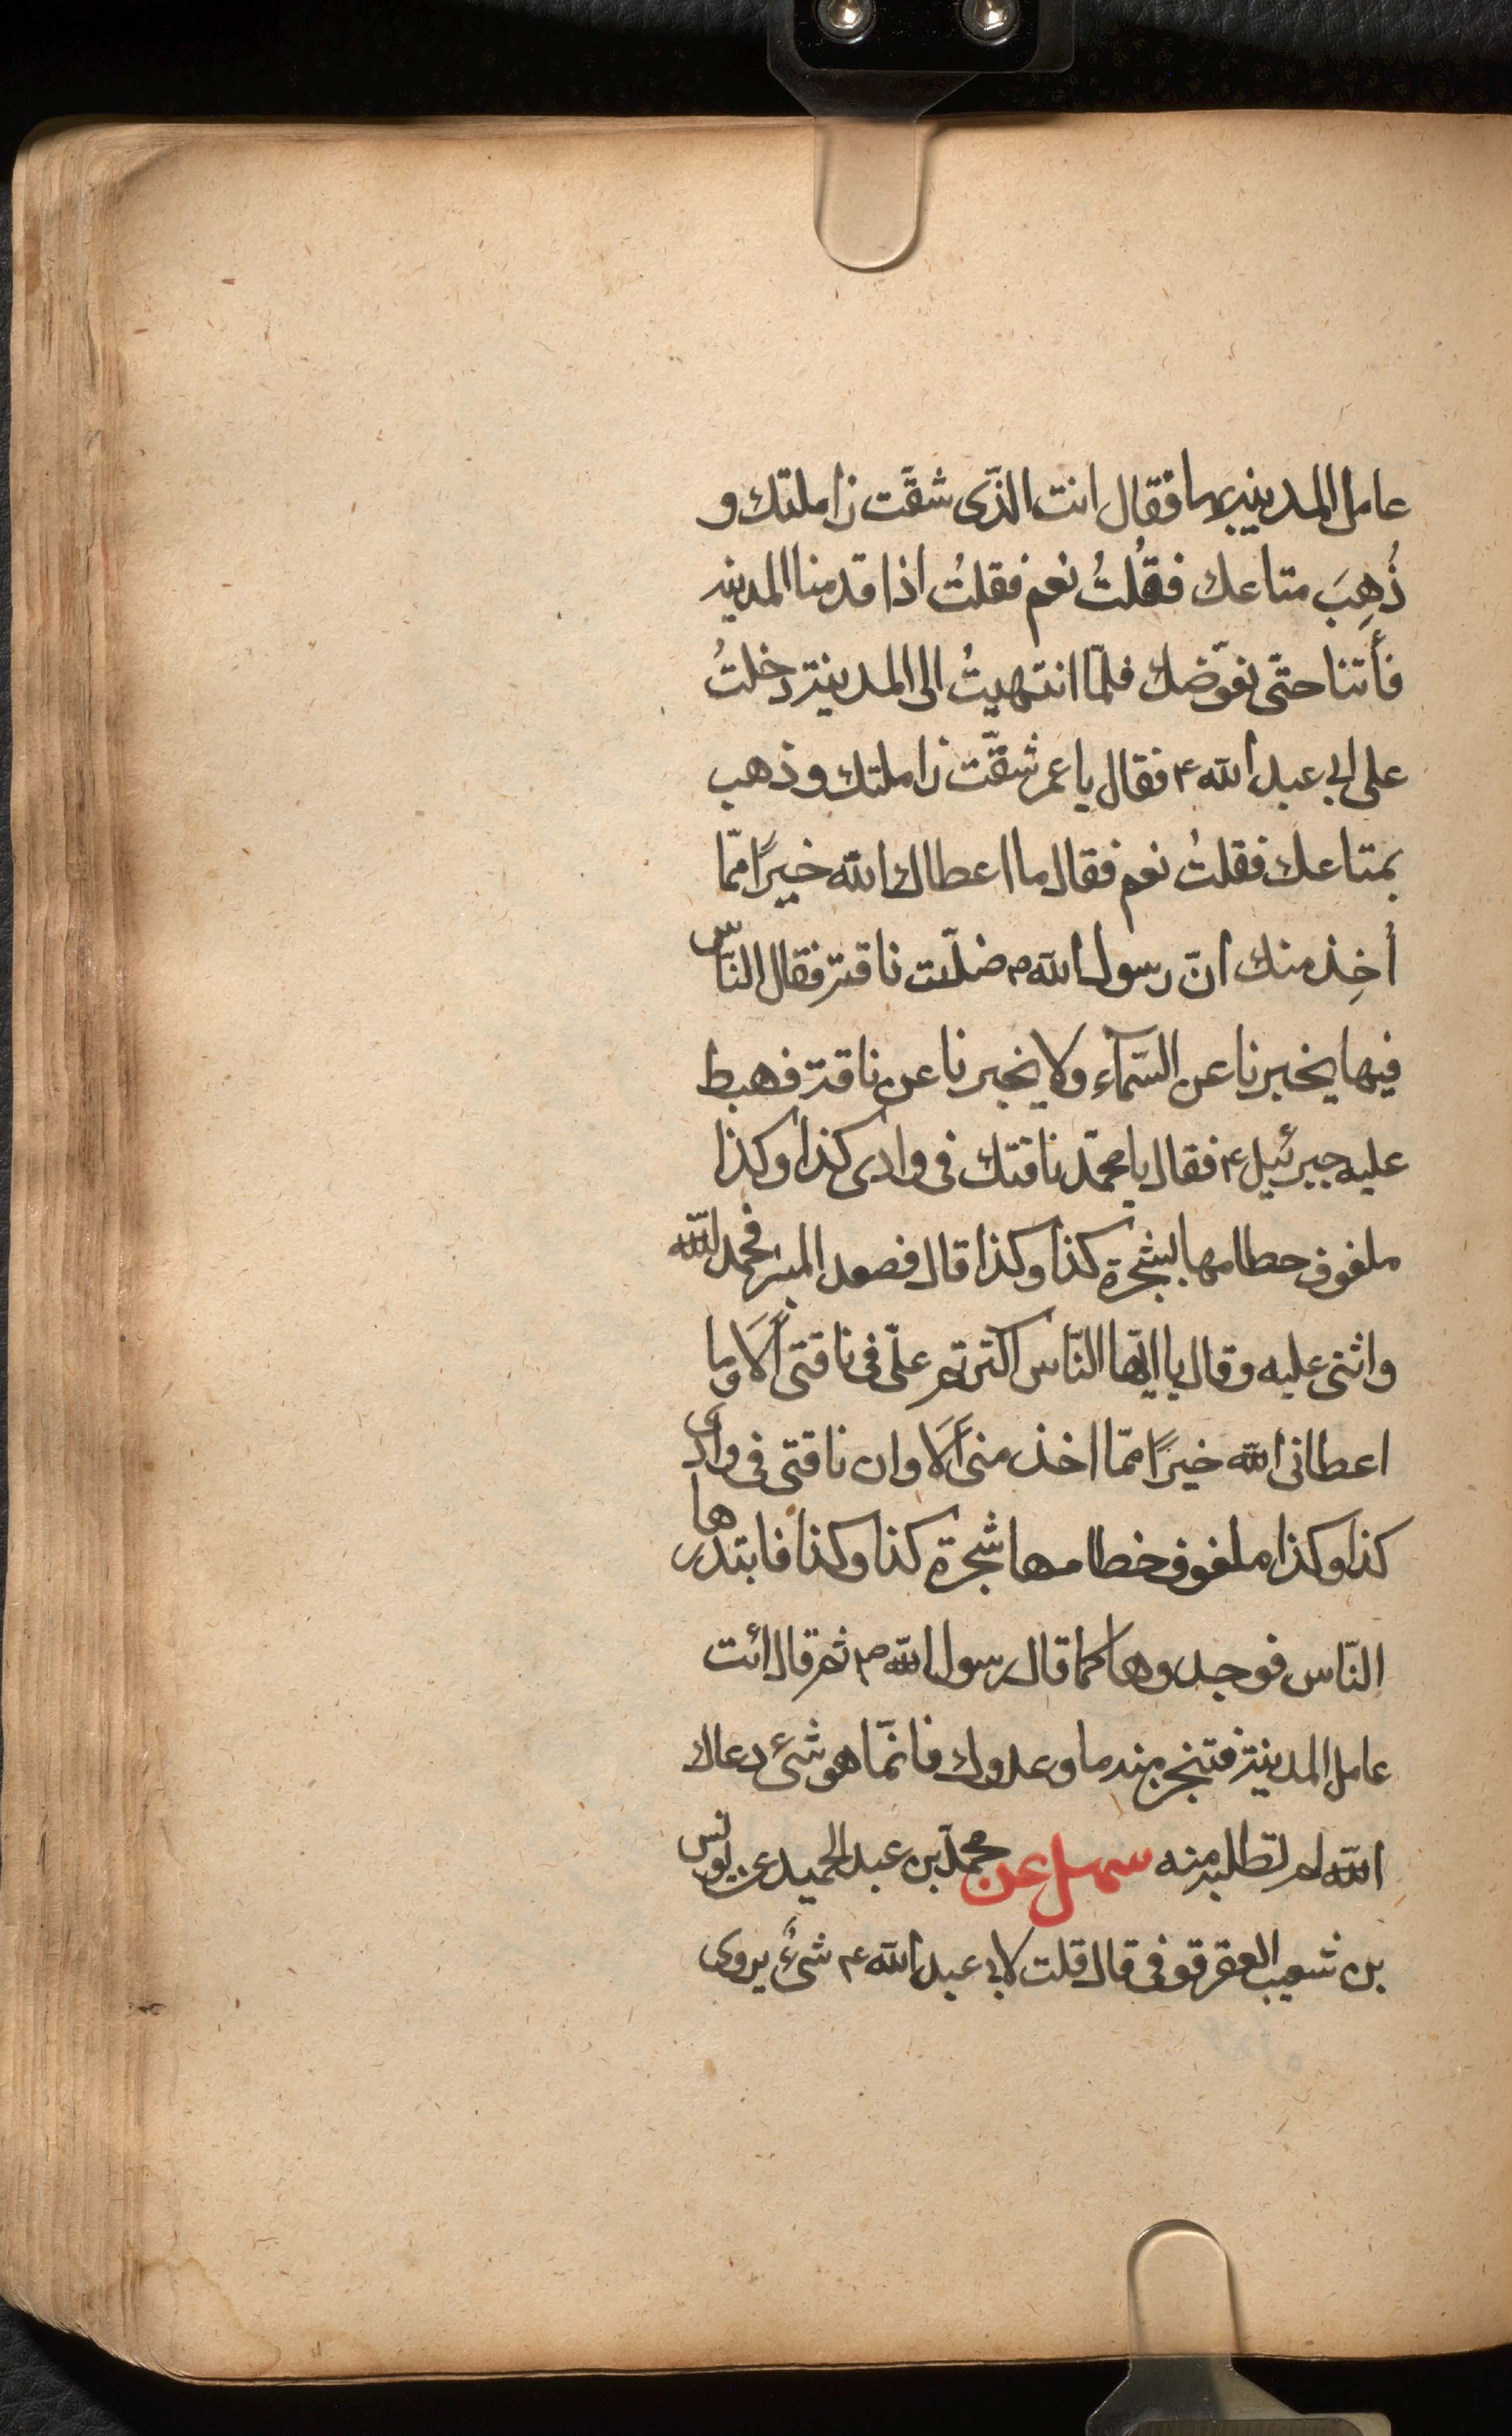 عامل المدينه بها فقال انت الذّى شقّت زاملتك و
ذُهِبَ متاعك فقُلتُ نعم فقلتُ اذا قدمنا المدينه
فأتنا حتّى نعوّضك فلمّا انتهيتُ الى المدينة دخلتُ
على ابى عبد الله ۴ فقال يا عمر شقّت زاملتك وذهب
بمتاعك فقلتُ نعم فقال ما اعطاك الله خيرًا ممّا
أُخِذ منك انّ رسول الله ص ضلّت ناقته فقال النّاس
فيها يخبرنا عن السّمآء ولا يخبرنا عن ناقته فهبط
عليه جبرئيل ۴ فقال يا محمّد ناقتك فى وادى كذا وكذا
ملفوف حطامها بشجرة كذا وكذا قال فصعد المنبر فحمد اللّه
واثنى عليه وقال يا ايّها النّاس اكثرتم علىّ فى ناقتى ألَا وما
اعطانى الله خيرًا ممّا اخذ منى ألَا وان ناقتى فى وادى
كذا وكذا ملفوف خطامها شجرة كذا وكذا فابتدرها
النّاس فوجدوها كما قال رسول الله ص ثم قال ائت
عامل المدينة فتنجز منه ما وعدوك فانّما هو شئ دعاك
الله لم تطلبه منه سهل عن محمّد بن عبد الحميد عن يونس
بن شعيب العقرقوفى قال قلت لابى عبد الله ۴ شئٌ يروى